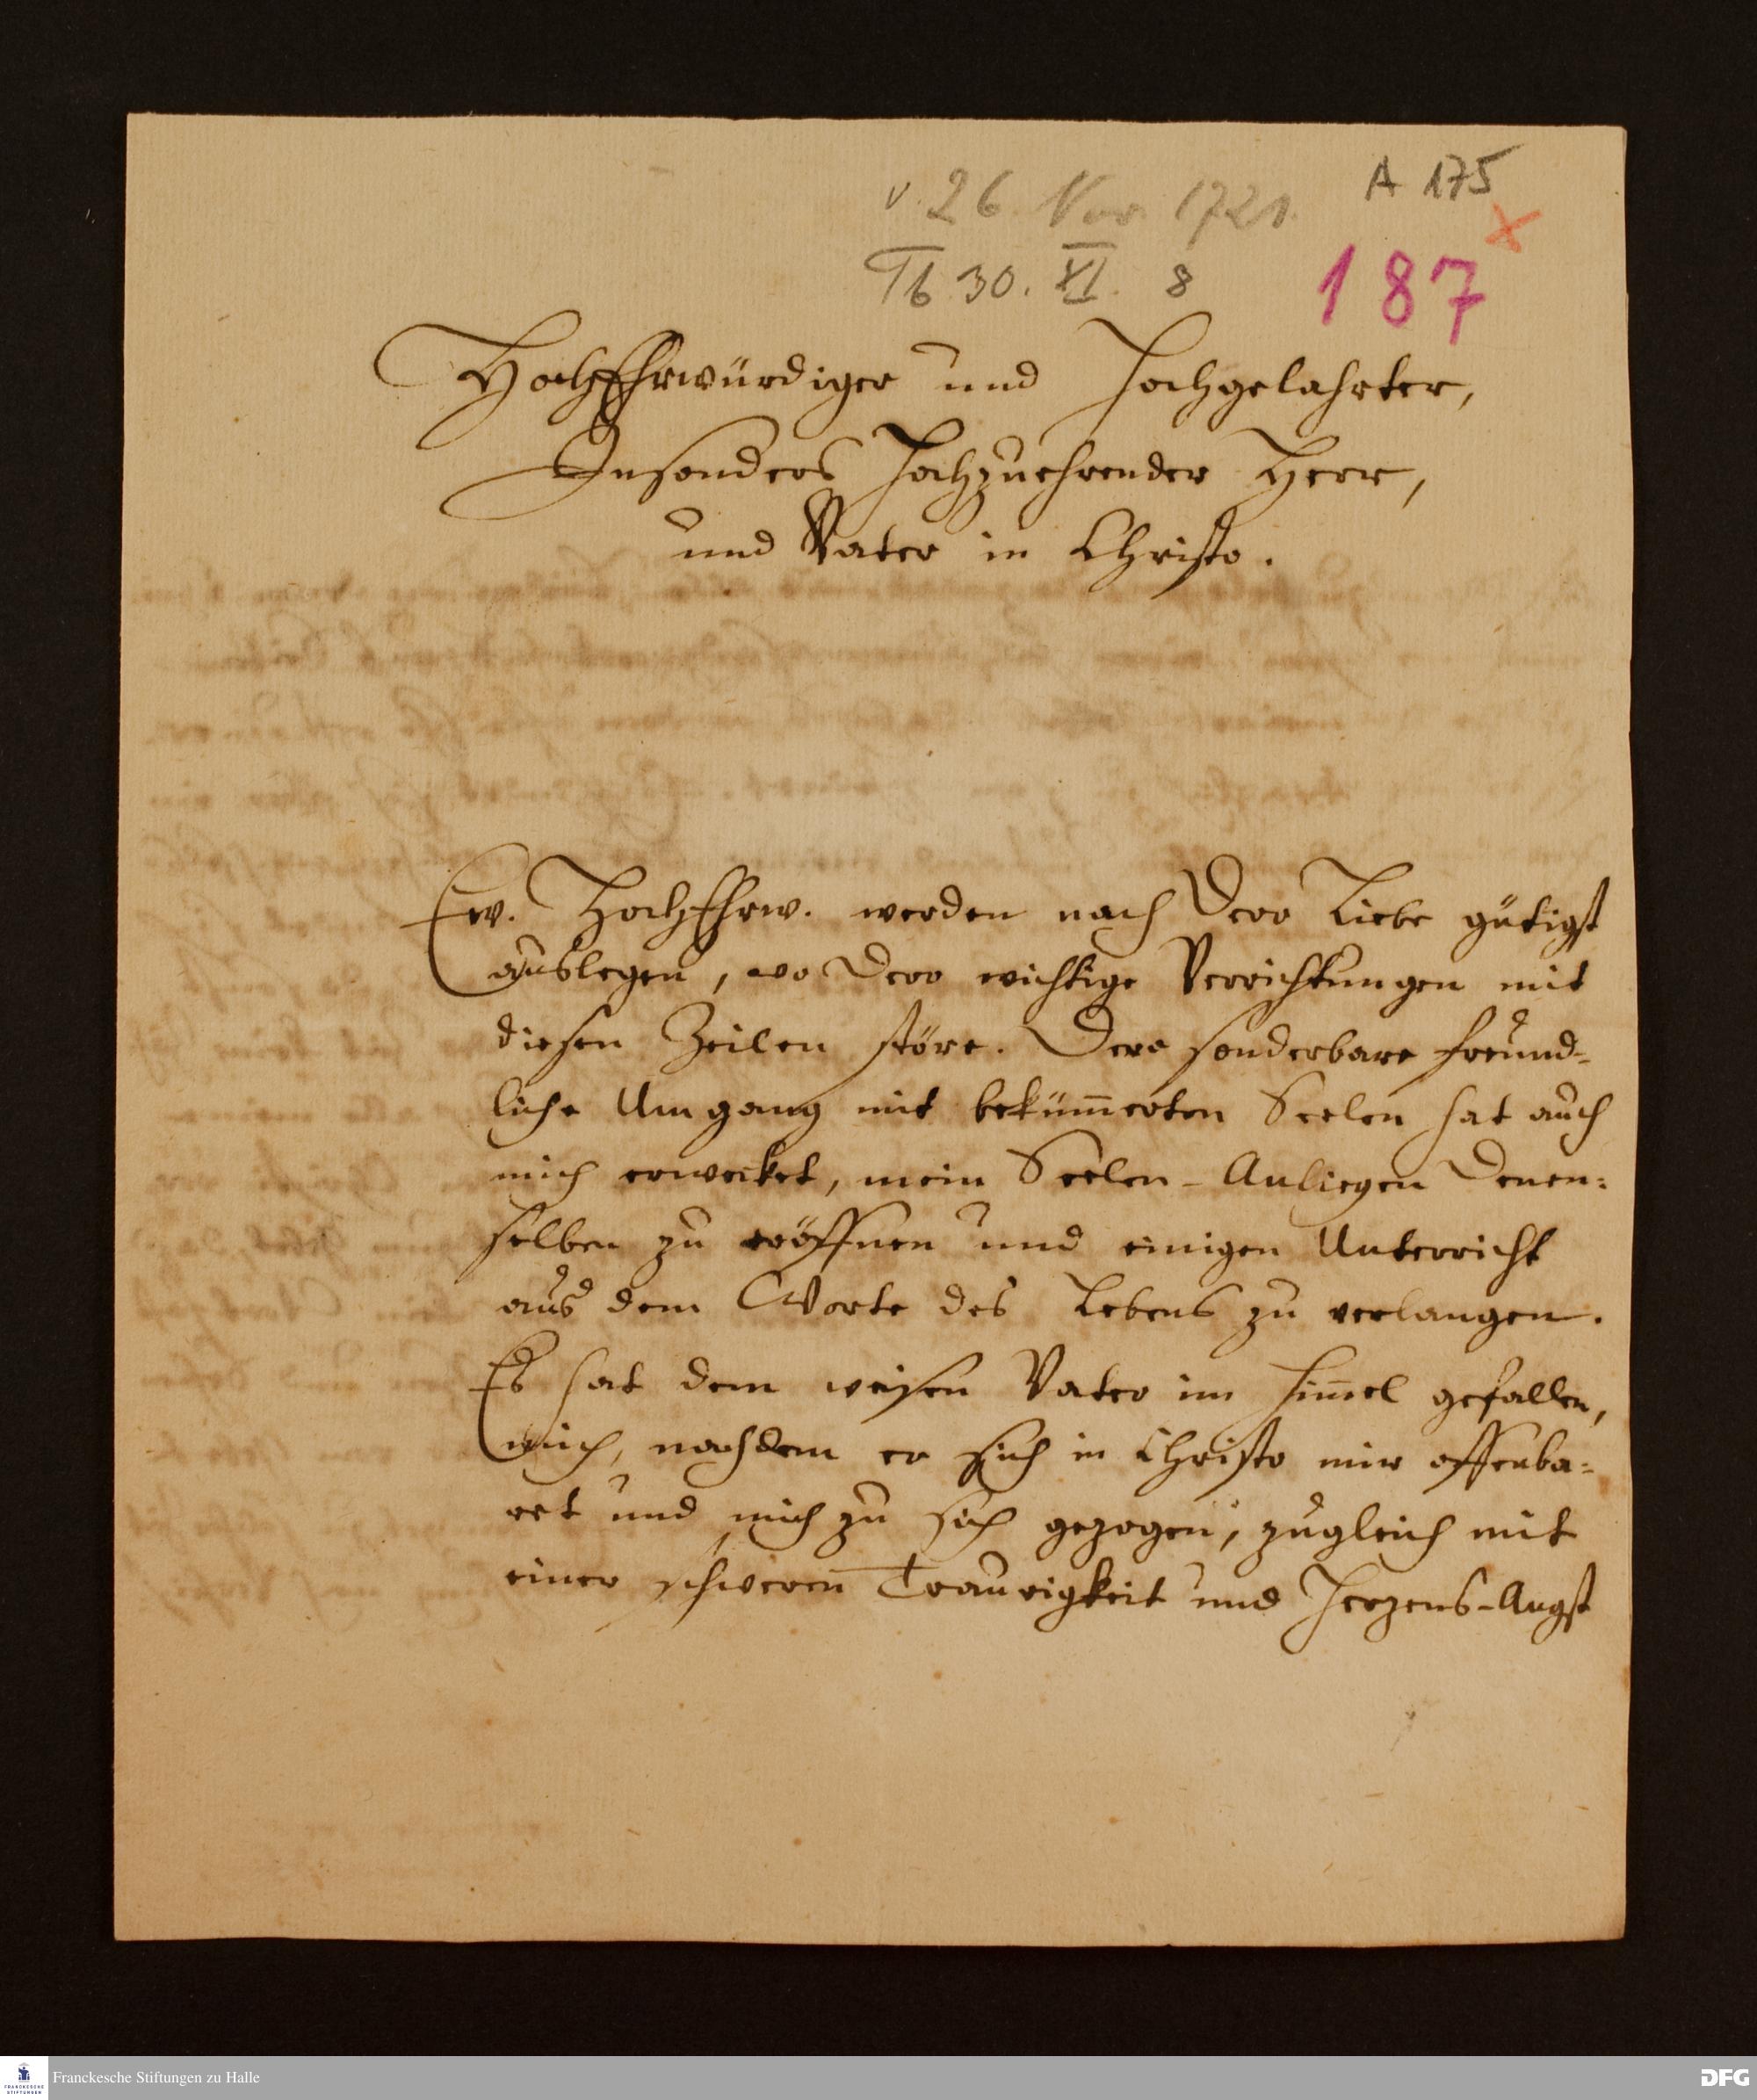 A 175
v. 26 Nov 1721.
Tb 30. XI. 8
187
HochEhrwürdiger und Hochgelahrter,
Insonders Hochzuehrender Herr,
und Vater in Christo.
Ew. HochEhrw. werden nach Dero Liebe gütigst
auslegen, wo Dero wichtige Verrichtungen mit
diesen Zeilen störe. Dero sonderbare freund-
liche Umgang mit bekum̅erten Seelen hat auch
mich erwecket, mein Seelen-Anliegen Denen-
selben zu eröffnen und einigen Unterricht
aus dem Worte des Lebens zu verlangen.
Es hat dem weisen Vater im Him̅el gefallen,
mich, nachdem er sich in Christo mir offenba-
ret und mich zu sich gezogen, zugleich mit
einer schweren Traurigkeit und Herzens-Angst
Franckesche Stiftungen zu Halle
FRANCKESCHE STIFTUNGEN
DFG